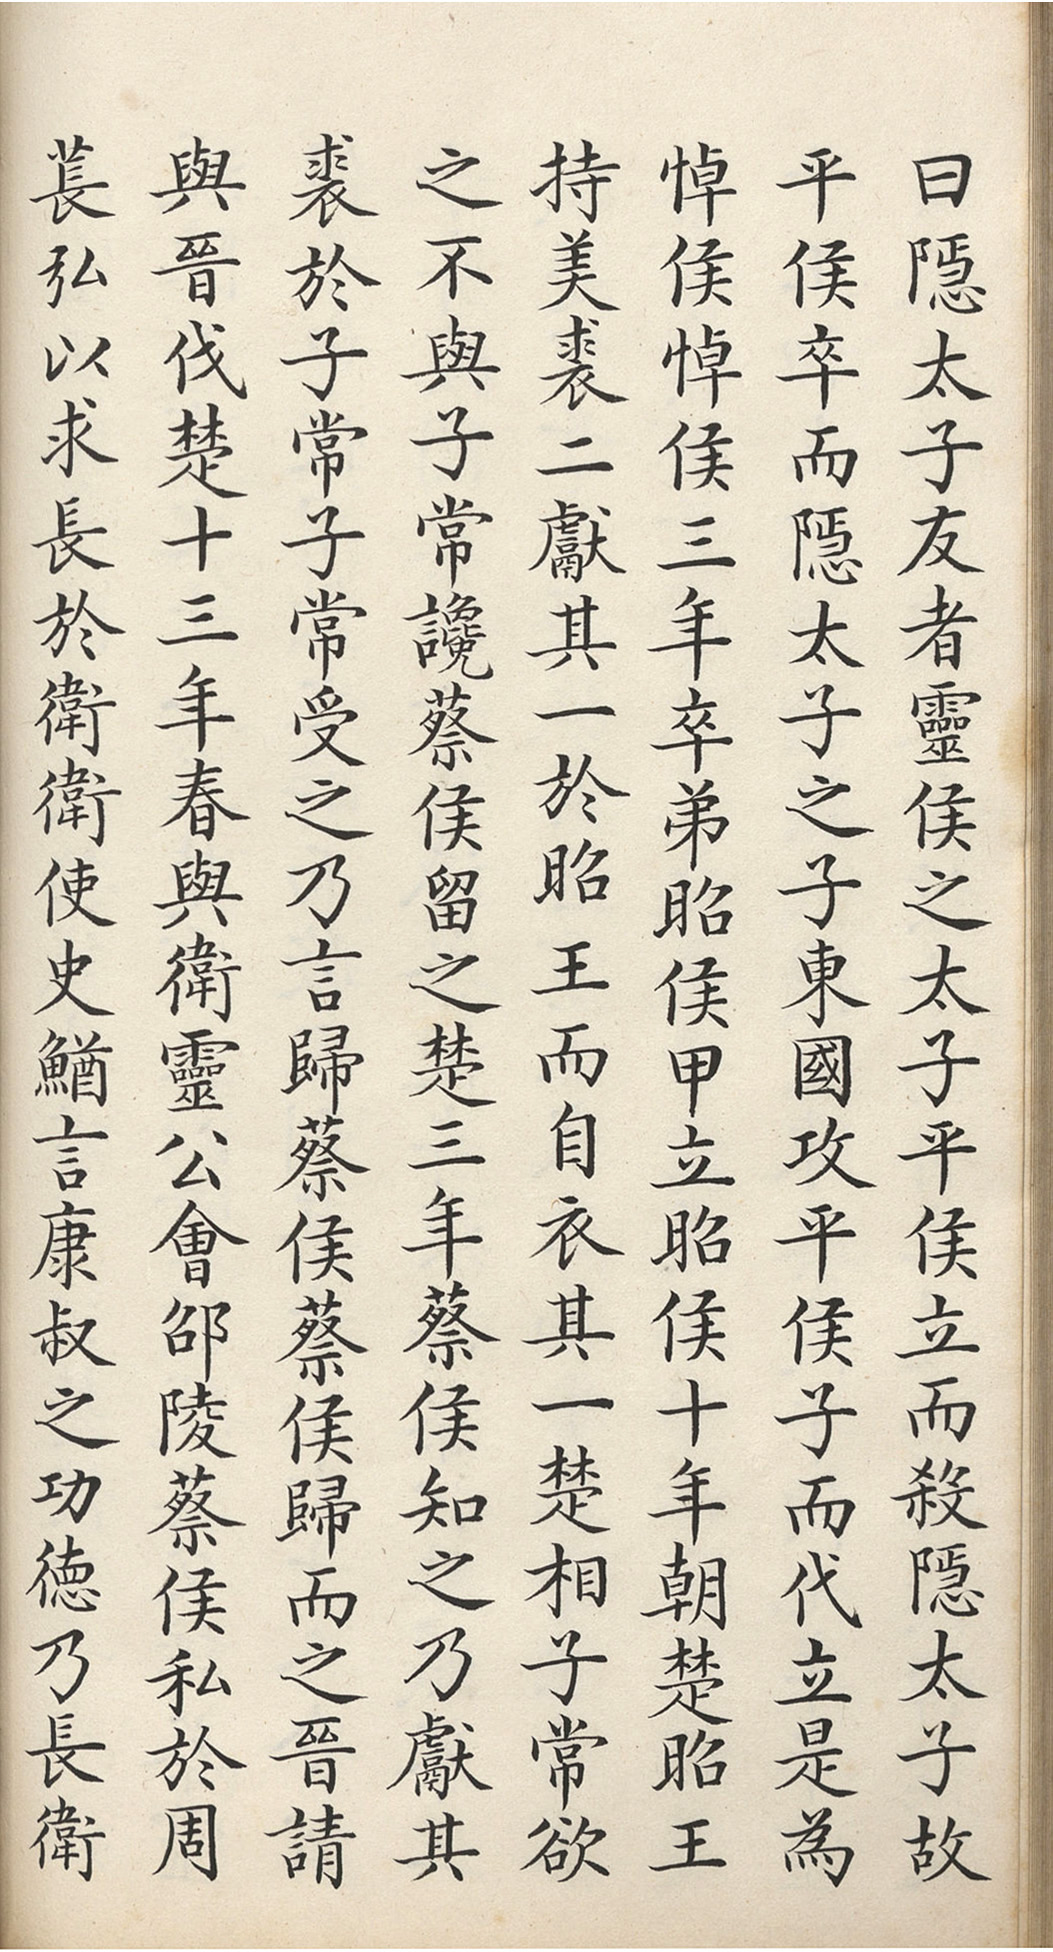 曰隱太子友者靈侯之太子平侯立而殺隱太子故
平侯卒而隱太子之子東國攻平侯子而代立是為
悼侯悼侯三年卒弟昭侯甲立昭侯十年朝楚昭王
持美裘二獻其一於昭王而自衣其一楚相子常欲
之不與子常讒蔡侯留之楚三年蔡侯知之乃獻其
裘於子常子常受之乃言歸蔡侯蔡侯歸而之晉請
與晉伐楚十三年春與衛靈公會邵陵蔡侯私於周
萇弘以求長於衛衛使史鰌言康叔之功德乃長衛